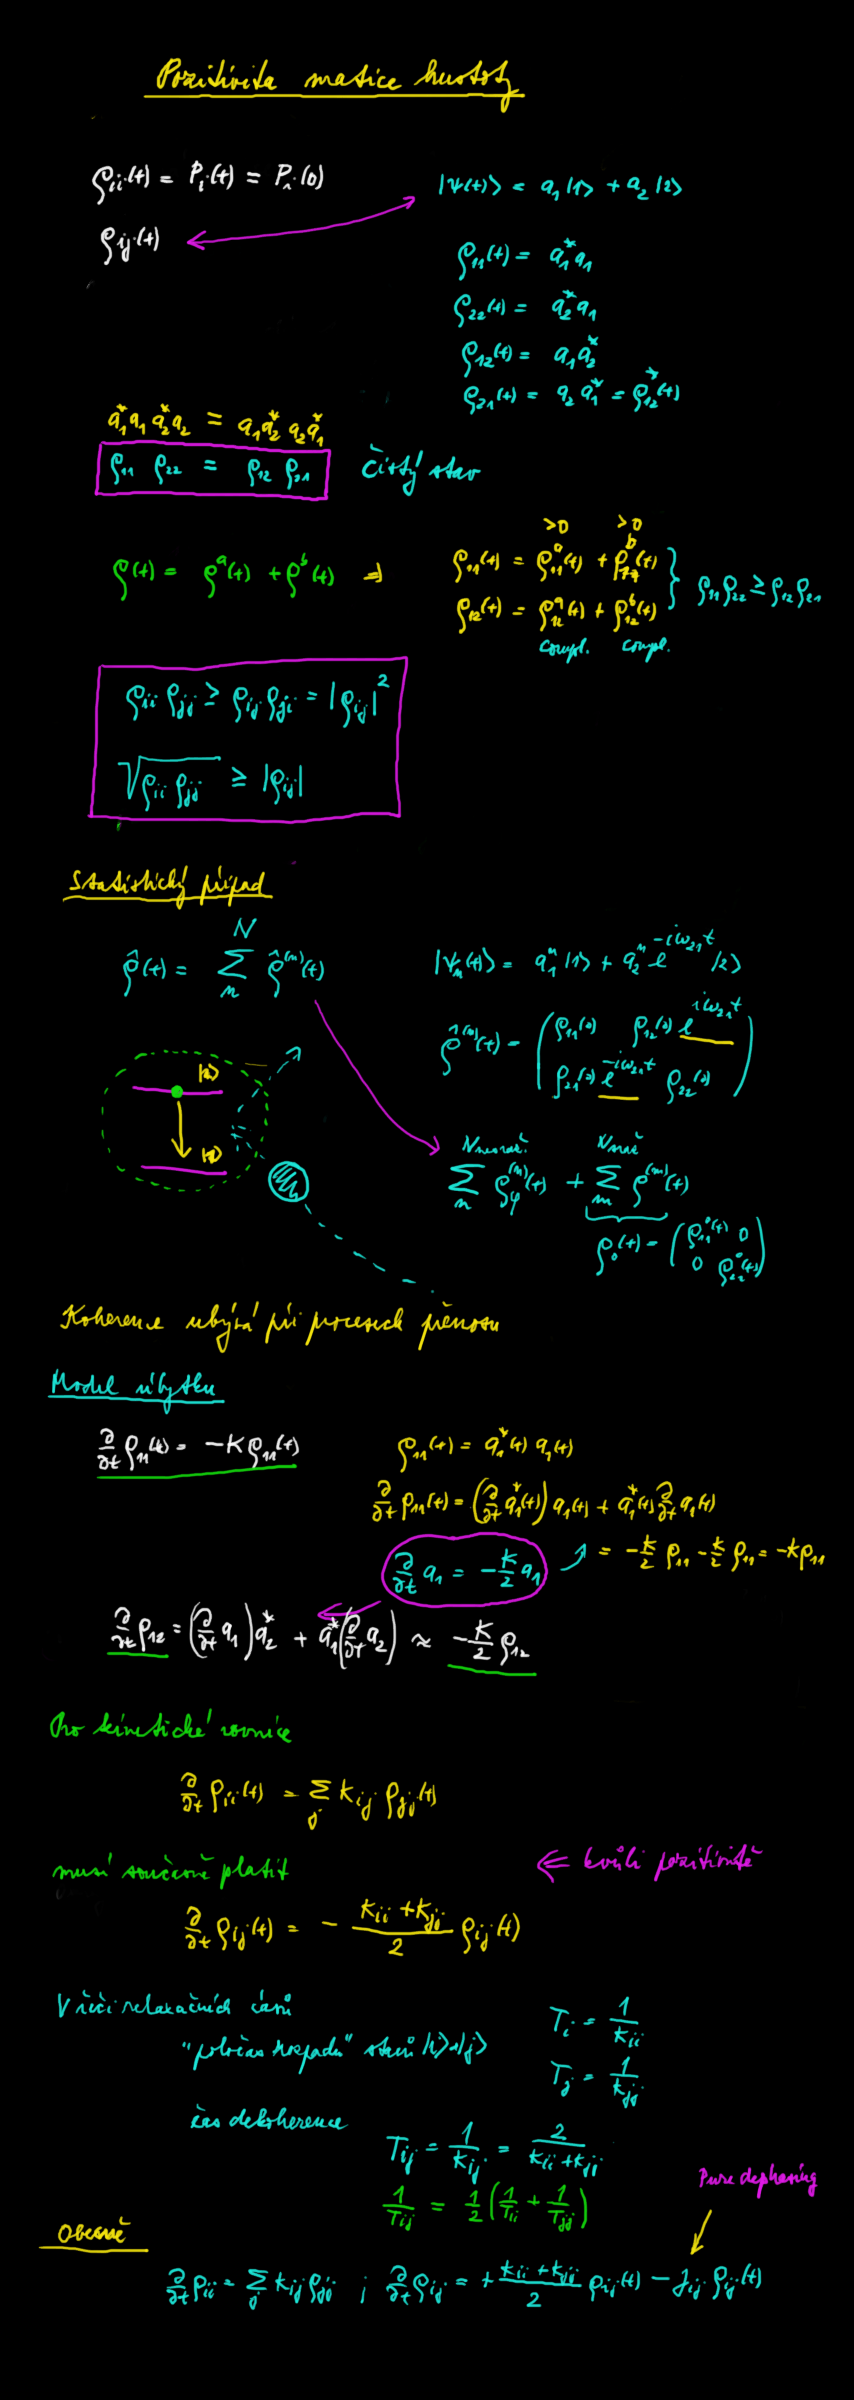 Pozitivita matice hustoty
ρ_ii(t) = P_i(t) = P_i(0)
ρ_ij(t)
|ψ(t)⟩ = a_1 |1⟩ + a_2 |2⟩
ρ_11(t) = a_1^* a_1
ρ_22(t) = a_2^* a_1
ρ_12(t) = a_1 a_2^*
ρ_21(t) = a_2 a_1^* = ρ_12^*(t)
a_1^* a_1 a_2^* a_2 = a_1 a_2^* a_2 a_1^*
ρ_11 ρ_22 = ρ_12 ρ_21 čistý stav
ρ(t) = ρ^a(t) + ρ^b(t) ⇒
>0 >0
ρ_11(t) = ρ_11^a(t) + ρ_11^b(t)
ρ_12(t) = ρ_12^a(t) + ρ_12^b(t)
compl. compl.
ρ_11 ρ_22 ≥ ρ_12 ρ_21
ρ_ii ρ_jj ≥ ρ_ij ρ_ji = |ρ_ij|^2
√(ρ_ii ρ_jj) ≥ |ρ_ij|
Statistický případ
ρ̂(t) = Σ_n^N ρ̂^(n)(t)
|ψ_n(t)⟩ = a_1^n |1⟩ + a_2^n e^{-iω_21 t} |2⟩
ρ̂^(n)(t) = ( ρ_11(0) ρ_12(0) e^{iω_21 t}
ρ_21(0) e^{-iω_21 t} ρ_22(0) )
|2⟩
|1⟩
Σ_n^{Nnesraž.} ρ_φ^(n)(t) + Σ_m^{Nsraž} ρ^(m)(t)
ρ_0(t) = ( ρ_11^0(t) 0
0 ρ_22^0(t) )
Koherence ubývá při procesech přenosu
Model úbytku
∂/∂t ρ_11(t) = -K ρ_11(t)
ρ_11(t) = a_1^*(t) a_1(t)
∂/∂t ρ_11(t) = (∂/∂t a_1^*(t)) a_1(t) + a_1^*(t) ∂/∂t a_1(t)
= -K/2 ρ_11 - K/2 ρ_11 = -K ρ_11
∂/∂t a_1 = -K/2 a_1
∂/∂t ρ_12 = (∂/∂t a_1) a_2^* + a_1^* (∂/∂t a_2) ≈ -K/2 ρ_12
Pro kinetické rovnice
∂/∂t ρ_ii(t) = Σ_j K_ij ρ_jj(t)
musí současně platit
⇐ kvůli pozitivitě
∂/∂t ρ_ij(t) = - (K_ii + K_jj)/2 ρ_ij(t)
V řeči relaxačních časů
"poločas rozpadu" stavů |i⟩ a |j⟩
T_i = 1/K_ii
T_j = 1/K_jj
čas dekoherence
T_ij = 1/K_ij = 2/(K_ii + K_jj)
1/T_ij = 1/2 (1/T_ii + 1/T_jj)
Pure dephasing
Obecně
∂/∂t ρ_ii = Σ_j K_ij ρ_jj ; ∂/∂t ρ_ij = + (K_ii + K_jj)/2 ρ_ij(t) - γ_ij ρ_ij(t)